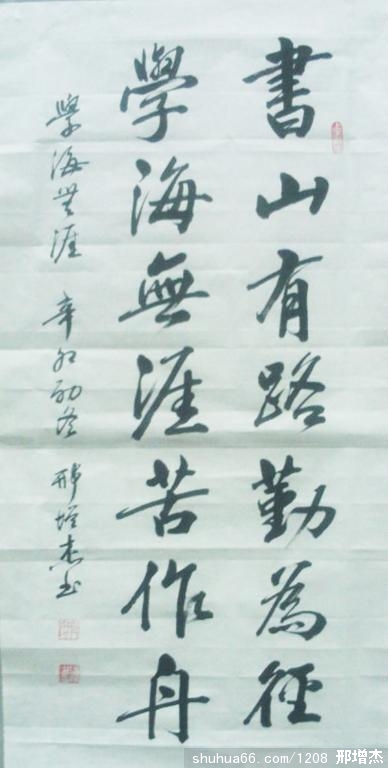 書山有路勤為徑
學海無涯苦作舟
學海無涯 辛卯初冬 邢增杰书
shuhua66.com/1208 邢增杰